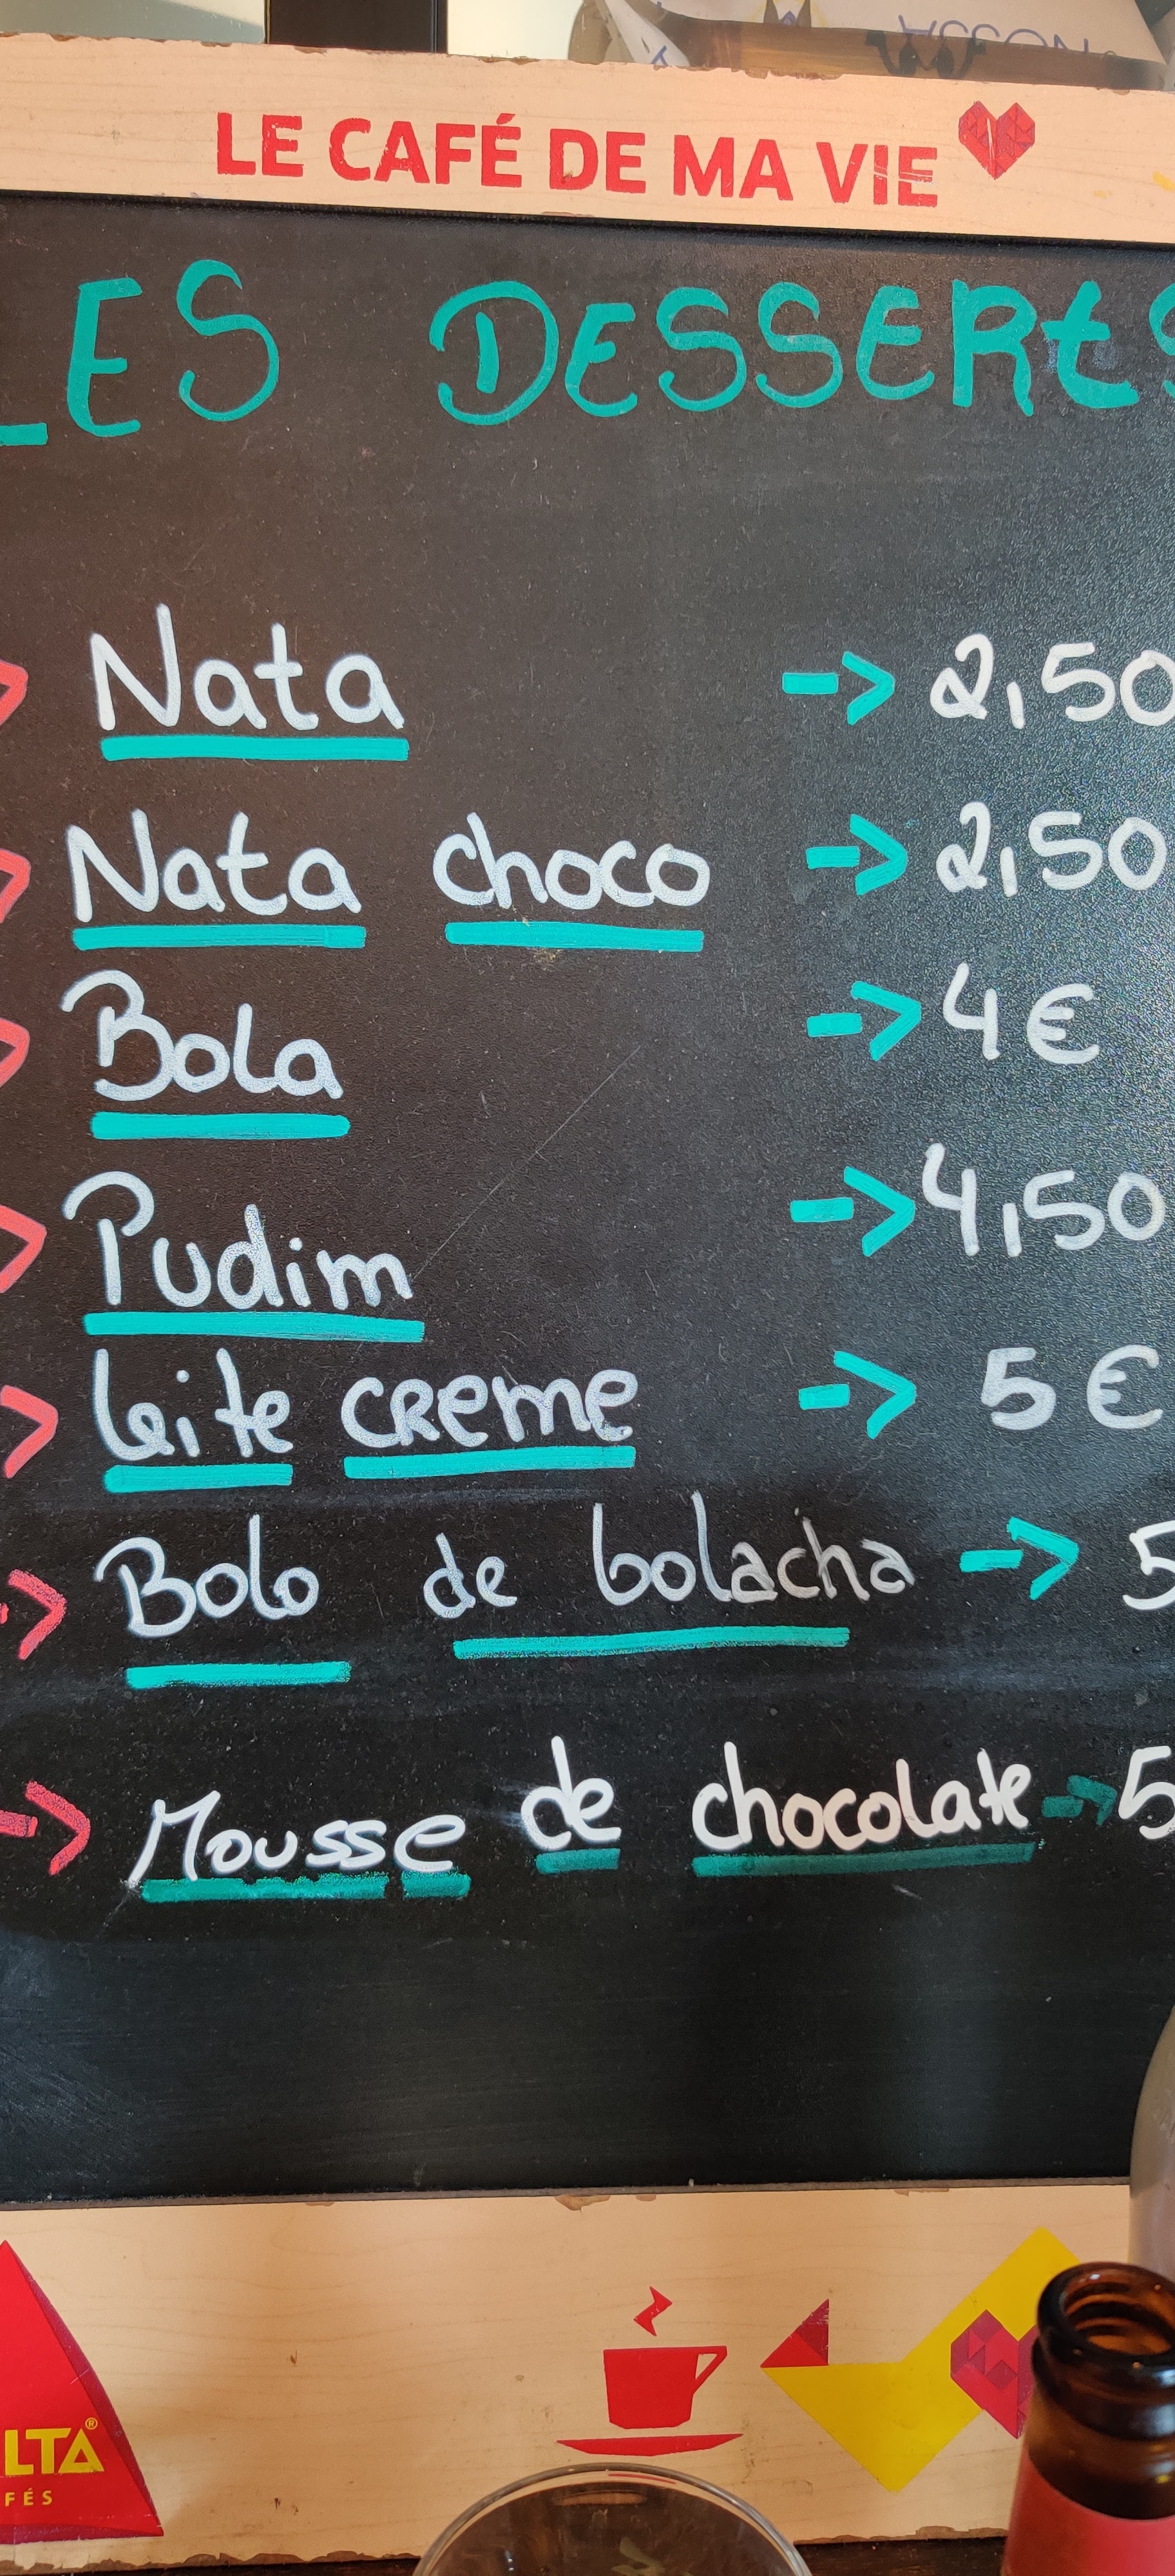 NOSSA
LE CAFÉ DE MA VIE
LES DESSERtS
Nata -> 2,50
Nata choco -> 2,50
Bola -> 4€
Pudim -> 4,50
leite cReme -> 5€
Bolo de bolacha -> 5
Mousse de chocolate -> 5
LTA®
FÉS